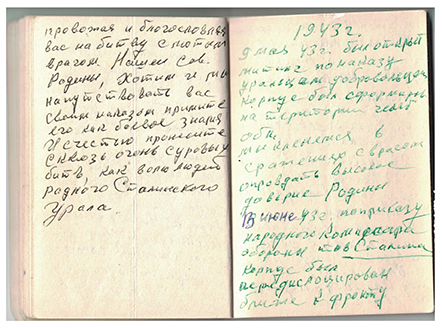 провожая и благословляя
вас на битву с лютым
врагом Нашей Сов.
Родины, хотим и мы
напутствовать вас
своим наказом примите
его как боевое знамя
И с честью пронесите
сквозь огонь суровых
битв, как волю людей
родного Сталинского
Урала
1943 г.
9 мая 43 г. был открыт
митинг по наказу
уральцам добровольцам
корпус был сформирован
на територии
обл.
мы клянемся в
сражениях с врагом
оправдать высокое
доверие Родины
В июне 43 г. по приказу
народного Комисара
обороны тов Сталина
корпус был
передислоцирован
ближе к фронту